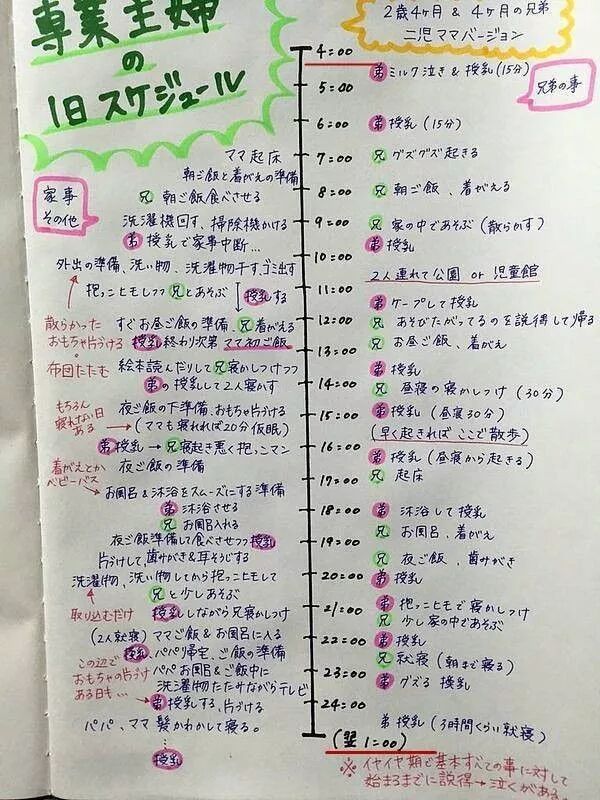 専業主婦
の
1日スケジュール
2歳4ヶ月 & 4ヶ月の兄弟
二児ママバージョン
兄弟の事
家事
その他
ママ起床
朝ご飯と着がえの準備
兄 朝ご飯食べさせる
洗濯機回す、掃除機かける
弟 授乳で家事中断...
外出の準備、洗い物、洗濯物干す、ゴミ出す
抱っこヒモしつつ 兄とあそぶ
授乳する
散らかった
おもちゃ片づける
すぐお昼ご飯の準備、兄着がえる
授乳終わり次第 ママ初ご飯
布団たたむ
絵本読んだりして兄寝かしつけつつ
弟の授乳して2人寝かす
もちろん
寝れない日
ある
夜ご飯の下準備、おもちゃ片づける
(ママも寝れれば20分仮眠)
弟授乳→兄寝起き悪く抱っこマン
着がえとか
ベビーバス
夜ご飯の準備
お風呂&沐浴をスムーズにする準備
弟 沐浴させる
兄 お風呂入れる
夜ご飯準備して食べさせつつ授乳
片づけして、歯みがき&耳そうじする
洗濯物、洗い物してから抱っこヒモして
兄と少しあそぶ
取り込むだけ
授乳しながら兄寝かしつけ
(2人就寝) ママご飯&お風呂に入る
授乳、パパ帰宅、ご飯の準備
この辺で
おもちゃの片づけ
ある日も...
パパお風呂&ご飯中に
洗濯物たたみながらテレビ
弟授乳する、片づけ
パパ、ママ 髪かわかして寝る。
...
授乳
4:00
弟 ミルク泣き & 授乳(15分)
5:00
6:00
弟 授乳(15分)
7:00
兄 グズグズ起きる
8:00
兄 朝ご飯、着がえる
9:00
兄 家の中であそぶ(散らかす)
弟 授乳
10:00
2人連れて公園 or 児童館
11:00
弟 ケープして授乳
12:00
兄 あそびたがってるのを説得して帰る
兄 お昼ご飯、着がえ
13:00
弟 授乳
14:00
兄 昼寝の寝かしつけ(30分)
15:00
弟 授乳(昼寝30分)
(早く起きればここで散歩)
16:00
弟 授乳(昼寝から起きる)
17:00
兄 起床
18:00
弟 沐浴して授乳
兄 お風呂、着がえ
19:00
兄 夜ご飯、歯みがき
20:00
弟 授乳
21:00
弟 抱っこヒモで寝かしつけ
兄 少し家の中であそぶ
22:00
弟 授乳
兄 就寝(朝まで寝る)
23:00
弟 グズる 授乳
24:00
弟 授乳(3時間くらい就寝)
(翌1:00)
※イヤイヤ期で基本すべての事に対して
始まるまでに説得→泣くがある。